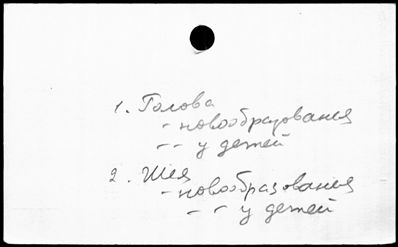 1. Голова
- новообразования
- - у детей
2. Шея
- новообразования
- - у детей